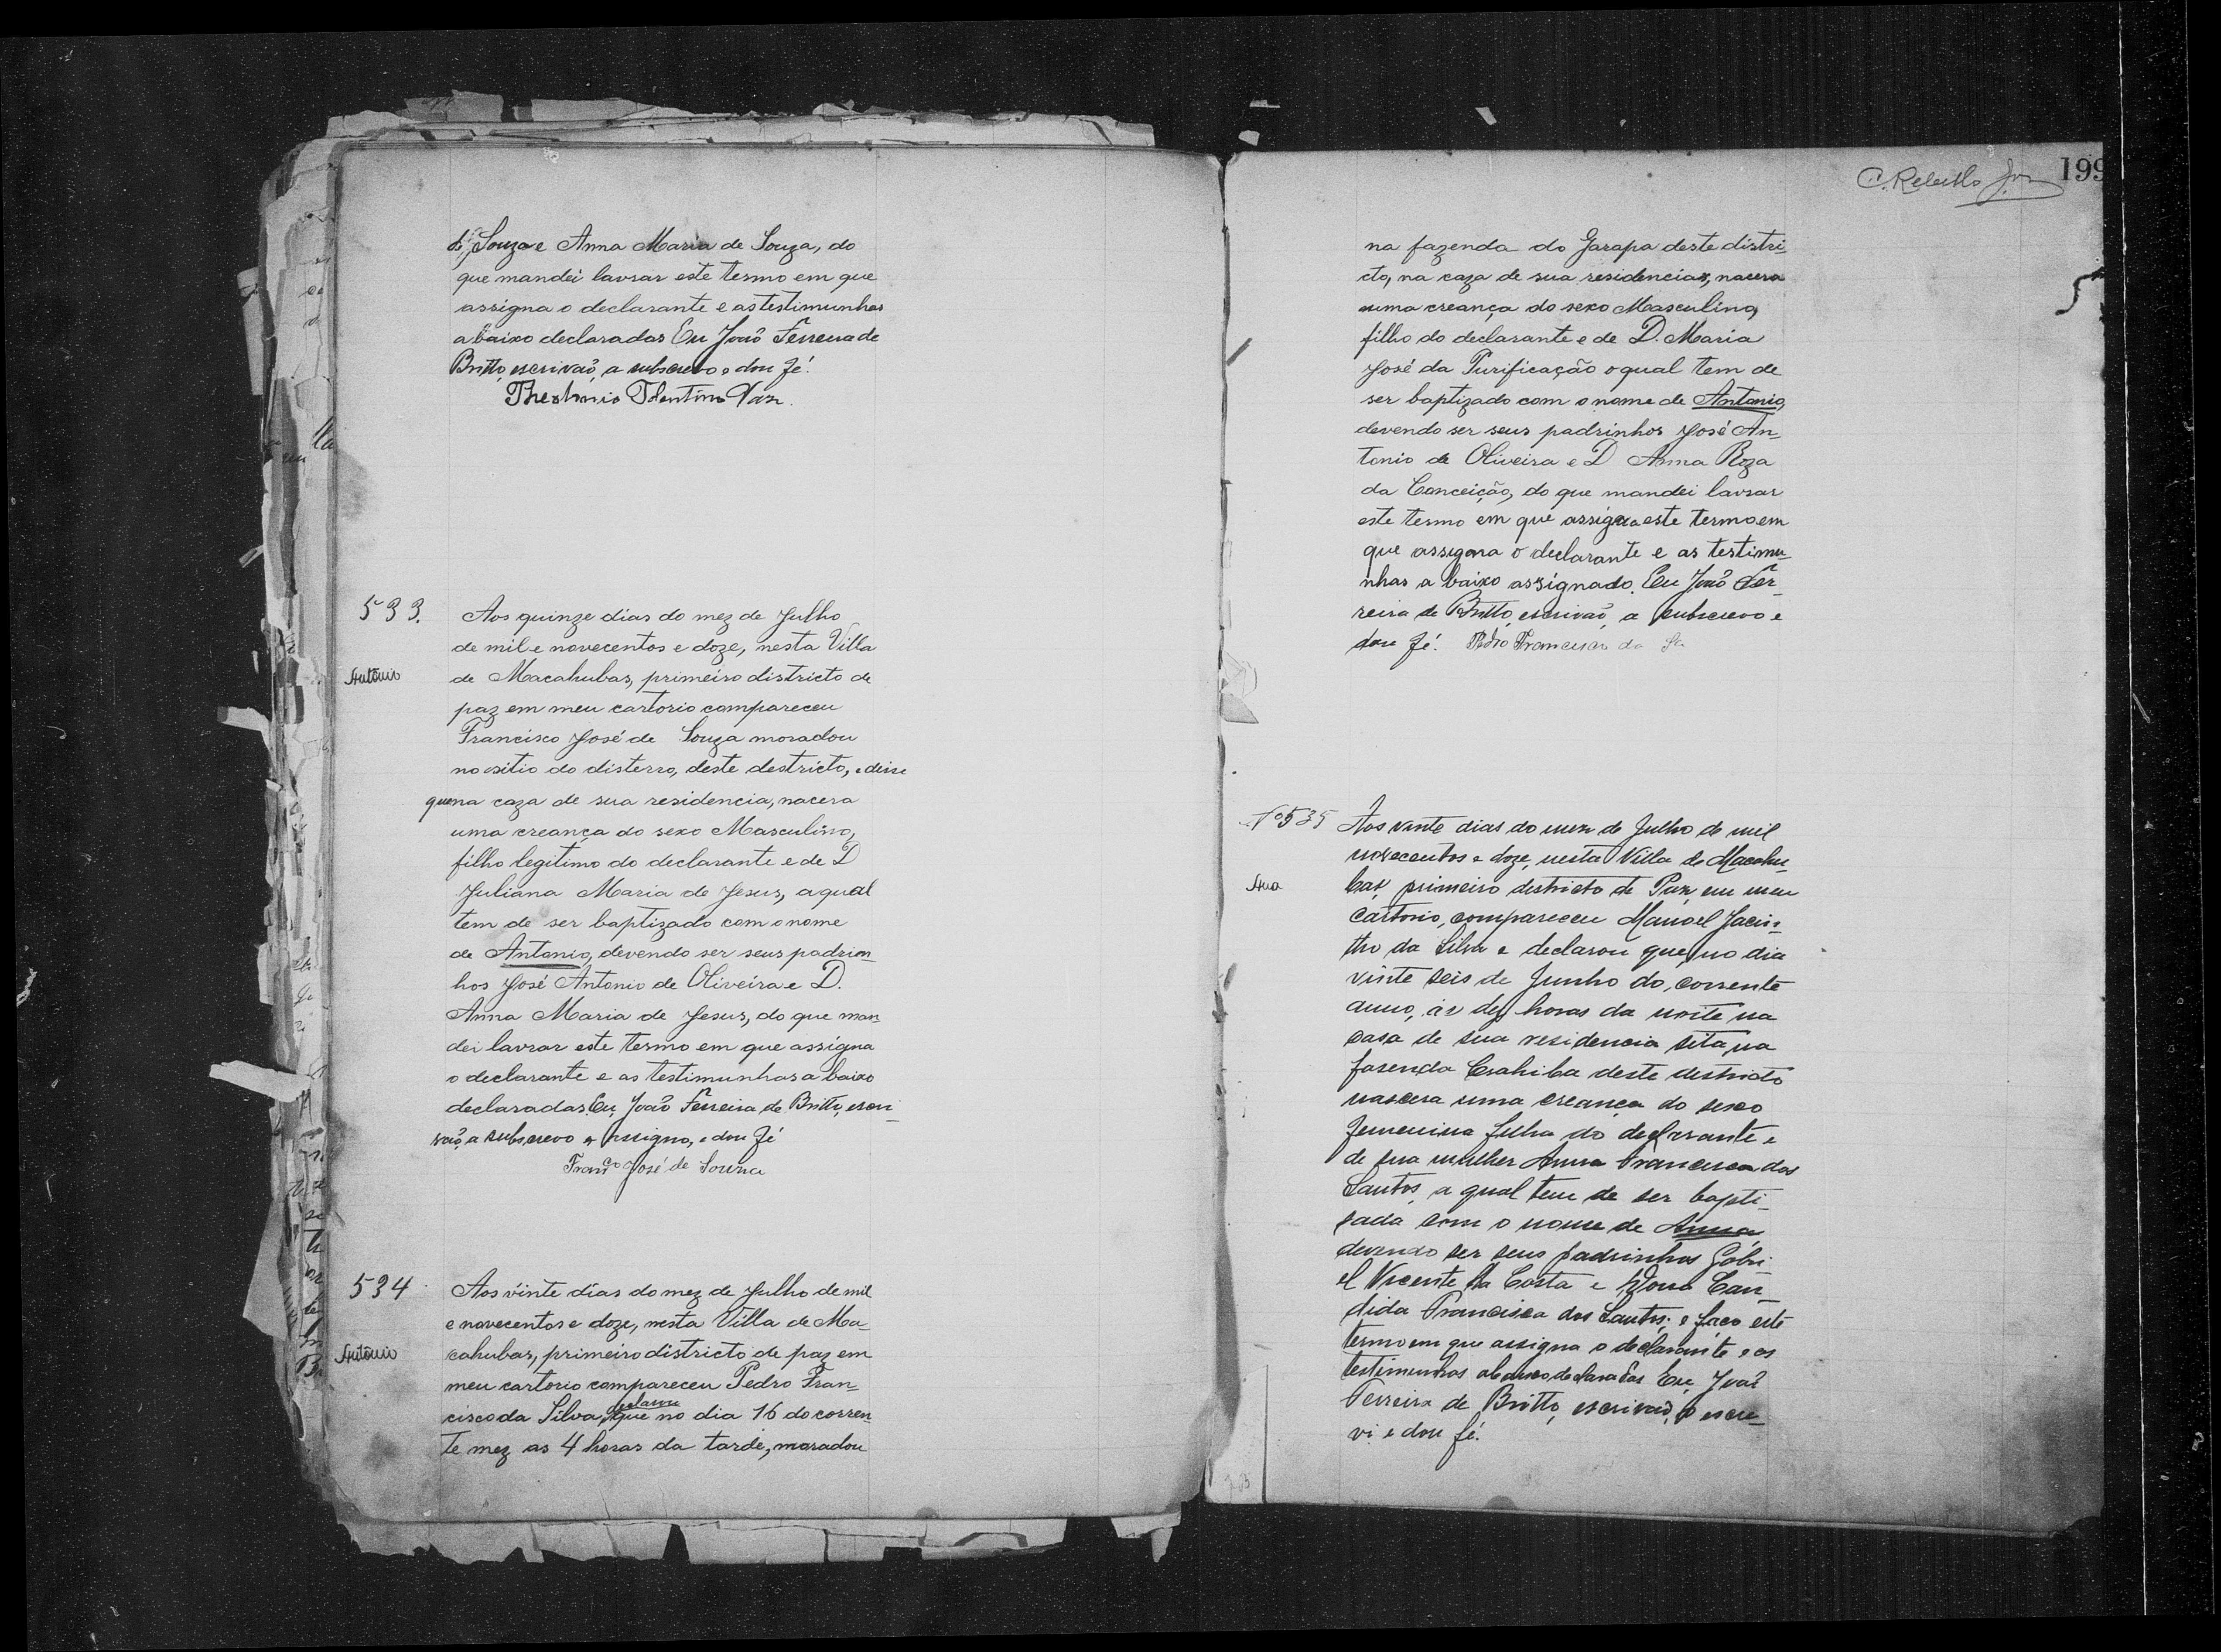 de Souza e Anna Maria de Souza, do
que mandei lavrar este termo em que
assigna o declarante e as testimunhas
abaixo declaradas Eu João Ferreira de
Britto, escrivaõ, a subscrevo e dou fé.
Theotonio Tolentino Vaz.
533.
Antônio
Aos quinze dias do mez de Julho
de mil e novecentos e doze, nesta Villa
de Macahubas, primeiro districto de
paz em meu cartorio compareceu
Francisco José de Souza moradou
no sitio do disterro, deste destricto, e disse
que na caza de sua residencia, nacera
uma creança do sexo Masculino,
filho legitimo do declarante e de D
Juliana Maria de Jesus, a qual
tem de ser baptizado com o nome
de Antonio, devendo ser seus padrin-
hos José Antonio de Oliveira e D.
Anna Maria de Jesus, do que man-
dei lavrar este termo em que assigna
o declarante e as testimunhas a baixo
declaradas. Eu, João Ferreira de Britto, escri-
vaõ, a subscrevo e assigno, e dou fé
Franco José de Souza
534
Antônio
Aos vinte dias do mez de Julho de mil
e novecentos e doze, nesta Villa de Ma-
cahubas, primeiro districto de paz em
meu cartorio compareceu Pedro Fran-
cisco da Silva, declarou que no dia 16 do corren-
te mez as 4 horas da tarde, moradou
199
na fazenda do Garapa deste distri-
cto, na caza de sua residencia, nacera
uma creança do sexo Masculino,
filho do declarante e de D. Maria
José da Purificação o qual tem de
ser baptizado com o nome de Antonio,
devendo ser seus padrinhos José An-
tonio de Oliveira e D Anna Roza
da Conceição, do que mandei lavrar
este termo em que assigna este termo em
que assigna o declarante e as testimu-
nhas a baixo assignado. Eu João Fer-
reira de Britto, escrivaõ, a subscrevo e
dou fé. Pedro Francisco da
No 535
Ana
Aos vinte dias do mez de Julho de mil
novecentos e doze, nesta Villa de Macahu-
bas, primeiro destricto de Paz, em meu
Cartorio, compareceu Manoel Jacin-
tho da Silva e declarou que, no dia
vinte seis de Junho do corrente
anno, ás dez horas da noite na
casa de sua residencia sita na
fasenda Crahiba deste destricto
nascera uma creança do sexo
femenina filha do declarante e
de sua mulher Anna Francisca dos
Santos, a qual tem de ser bapti-
sada com o nome de Anna
devendo ser seus padrinhos Gabri-
el Vicente da Costa e Dona Can-
dida Francisca dos Santos; e faço este
termo em que assigna o declarante e as
testimunhas abaixo declaradas Eu, João
Ferreira de Britto, escrivaõ, o escre-
vi e dou fé.